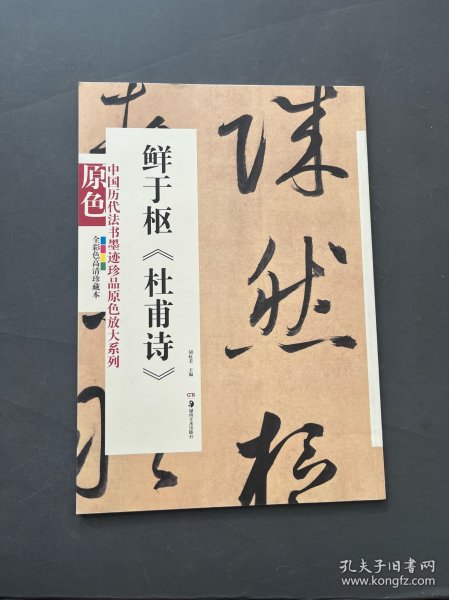 鲜于枢《杜甫诗》
原色
中国历代法书墨迹珍品原色放大系列
全彩色高清珍藏本
主编
湖南美术出版社
殊
然
孔夫子旧书网
www.kongfz.com